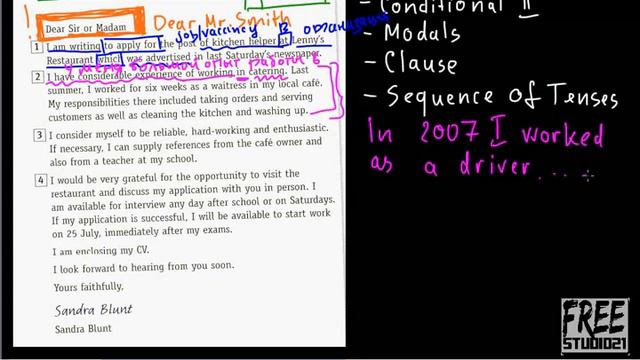 Dear Sir or Madam
Dear Mr. Smith
1 I am writing to apply for the post of kitchen helper at Lenny's
job/vaccincy
В организации
Restaurant which was advertised in last Saturday's newspaper.
У меня большой опыт работы в
2 I have considerable experience of working in catering. Last
summer, I worked for six weeks as a waitress in my local café.
My responsibilities there included taking orders and serving
customers as well as cleaning the kitchen and washing up.
3 I consider myself to be reliable, hard-working and enthusiastic.
If necessary, I can supply references from the café owner and
also from a teacher at my school.
4 I would be very grateful for the opportunity to visit the
restaurant and discuss my application with you in person. I
am available for interview any day after school or on Saturdays.
If my application is successful, I will be available to start work
on 25 July, immediately after my exams.
I am enclosing my CV.
I look forward to hearing from you soon.
Yours faithfully,
Sandra Blunt
Sandra Blunt
- Conditional II
- Modals
- Clause
- Sequence of Tenses
In 2007 I worked
as a driver....
FREE
STUDIO21